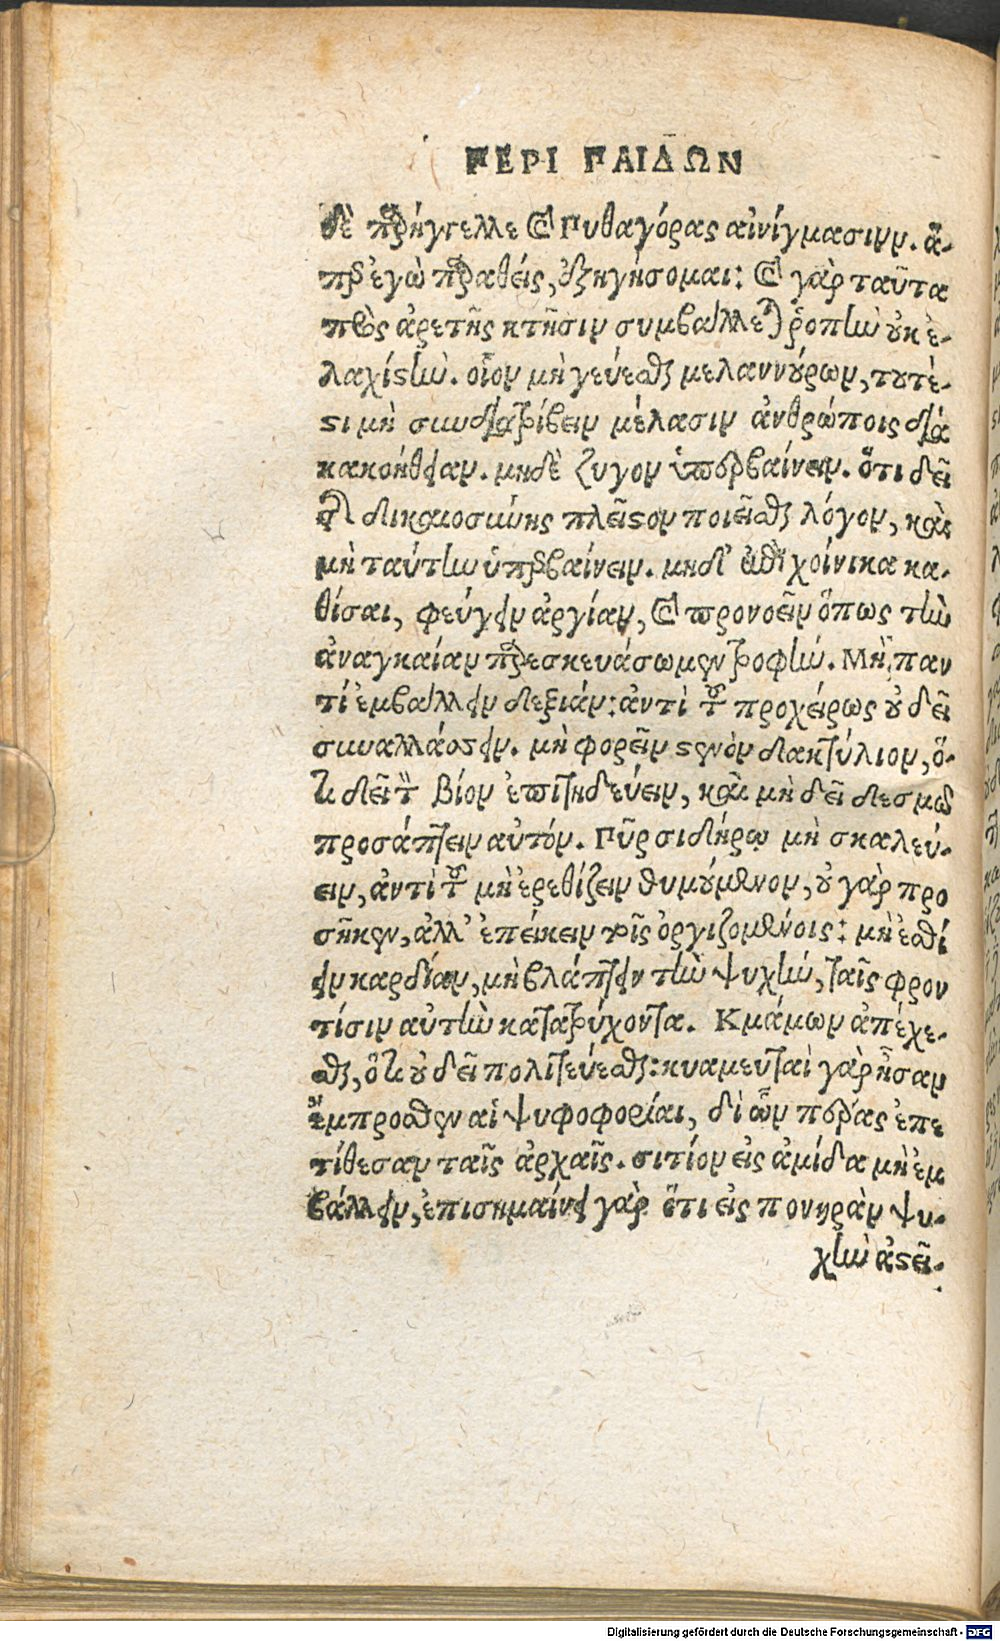 ΠΕΡΙ ΠΑΙΔΩΝ
δὲ παρήγγελλε καὶ Πυθαγόρας αἰνίγμασιν. ἅ-
περ ἐγὼ παραθείς, ἐξηγήσομαι: καὶ γὰρ ταῦτα
πρὸς ἀρετῆς κτῆσιν συμβάλλεται ῥοπὴν οὐκ ἐ-
λαχίστην. οἷον μὴ γεύεσθαι μελαννούρων, τουτέ-
στι μὴ συνδιατρίβειν μέλασιν ἀνθρώποις διὰ
κακοήθειαν. μηδὲ ζυγὸν ὑπερβαίνειν. ὅτι δεῖ
τῆς δικαιοσύνης πλεῖστον ποιεῖσθαι λόγον, καὶ
μὴ ταύτην ὑπερβαίνειν. μηδ' ἐπὶ χοίνικα κα-
θίσαι, φεύγειν ἀργίαν, καὶ προνοεῖν ὅπως τὴν
ἀναγκαίαν παρεσκευάσωμεν τροφήν. Μὴ παν
τί ἐμβάλλειν δεξιάν: ἀντὶ τοῦ προχείρως οὐ δεῖ
συναλλάσσειν. μὴ φορεῖν στενὸν δακτύλιον, ὅ-
τι δεῖ τὸν βίον ἐπιτηδεύειν, καὶ μὴ δεῖ δεσμῷ
προσάπτειν αὐτόν. Πῦρ σιδήρῳ μὴ σκαλεύ-
ειν, ἀντὶ τοῦ μὴ ἐρεθίζειν θυμούμενον, οὐ γὰρ προ
σῆκεν, ἀλλ' ἐπείκειν τοῖς ὀργιζομένοις: μὴ ἐσθί
ειν καρδίαν, μὴ βλάπτειν τὴν ψυχήν, ταῖς φρον
τίσιν αὐτὴν κατατρύχοντα. Κυάμων ἀπέχε-
σθαι, ὅτι οὐ δεῖ πολιτεύεσθαι: κυαμευταὶ γὰρ ἦσαν
ἔμπροσθεν αἱ ψυφοφορίαι, δι' ὧν πέρας ἐπε
τίθεσαν ταῖς ἀρχαῖς. σιτίον εἰς ἀμίδα μὴ ἐμ
βάλλειν, ἐπισημαίνει γὰρ ὅτι εἰς πονηρὰν ψυ-
χὴν ἀστεῖ-
Digitalisierung gefördert durch die Deutsche Forschungsgemeinschaft - DFG